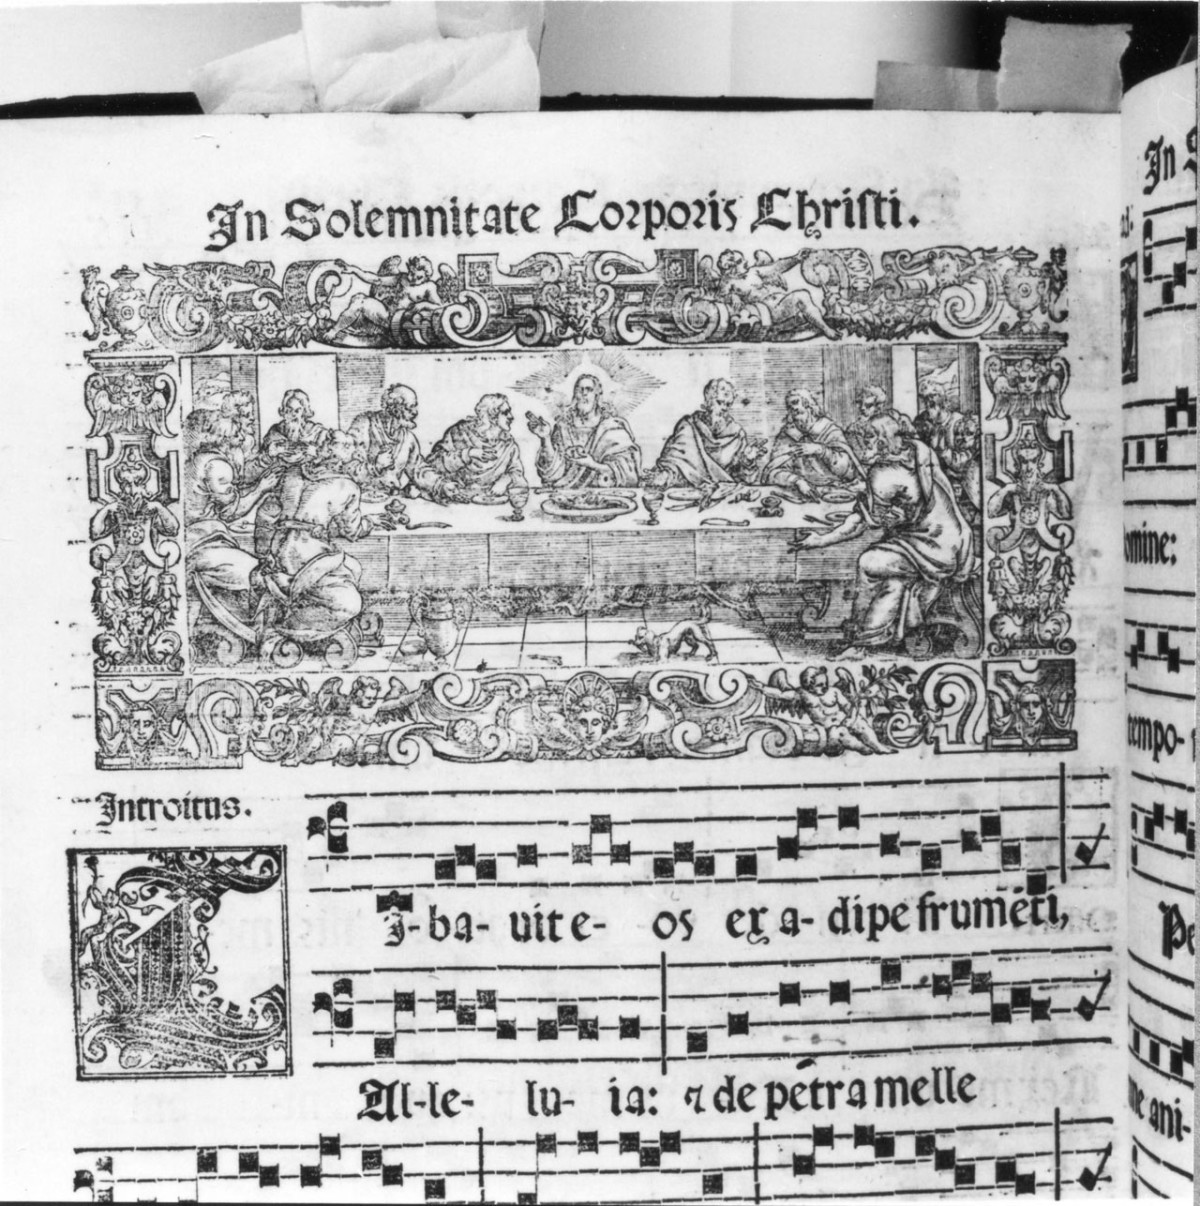 In Solemnitate Corporis Chriſti.
Introitus.
C I-ba-uit e- os ex a-dipe frumēti,
Al-le- lu- ia: ⁊ de petra melle
In
omine:
empo-
Pe
ne ani-